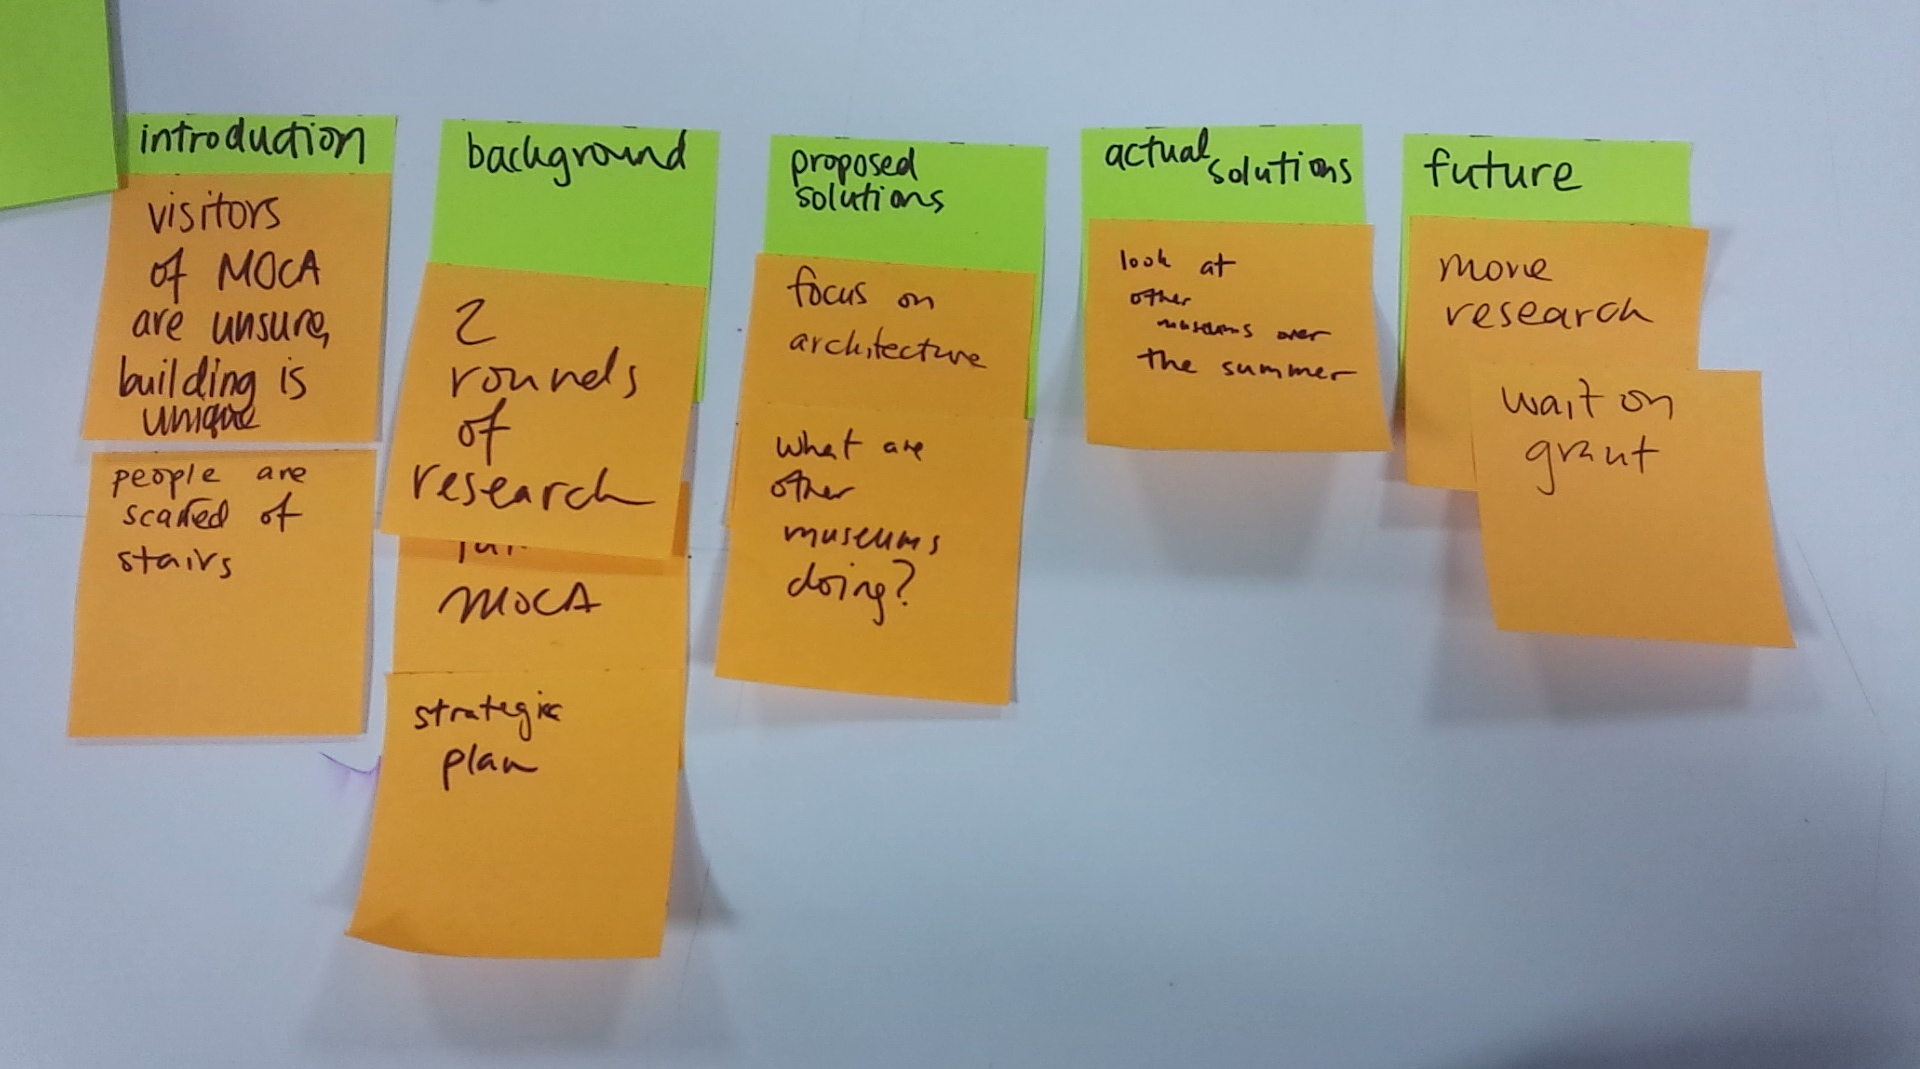 introduction
visitors
of MOCA
are unsure,
building is
unique
people are
scared of
stairs
background
2
rounds
of
research
MOCA
strategic
plan
proposed
solutions
focus on
architecture
what are
other
museums
doing?
actual
solutions
look at
other
museums over
the summer
future
more
research
wait on
grant